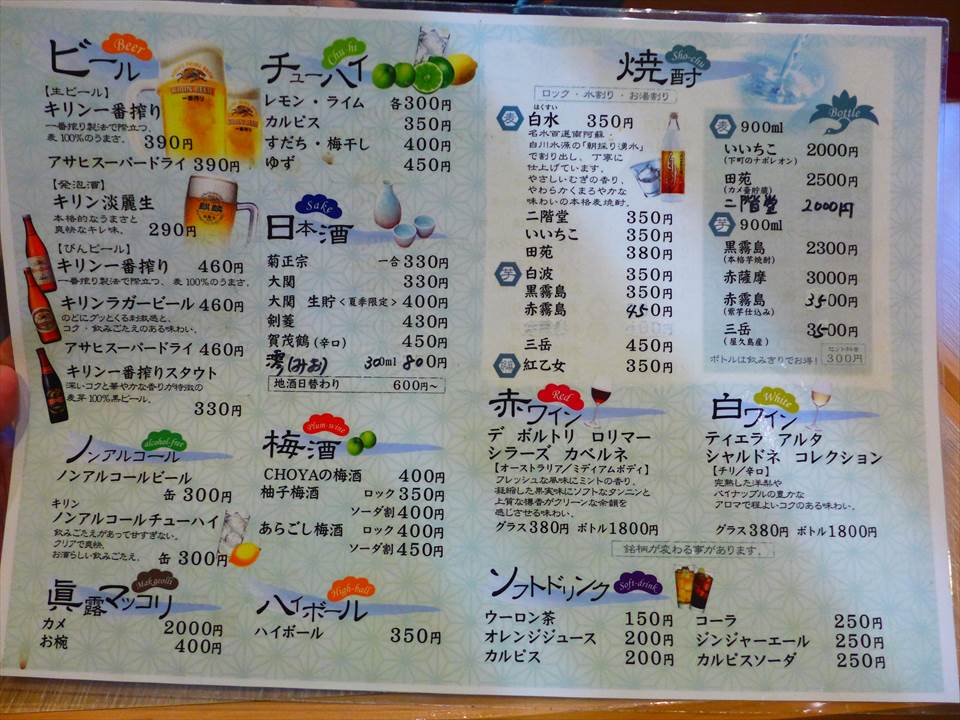 ビール Beer
【生ビール】
キリン一番搾り
一番搾り製法で際立つ、
麦100%のうまさ。 390円
アサヒスーパードライ 390円
【発泡酒】
キリン淡麗生
本格的なうまさと
爽快なキレ味。 290円
【びんビール】
キリン一番搾り 460円
一番搾り製法で際立つ、麦100%のうまさ。
キリンラガービール 460円
のどにグッとくる刺激感と、
コク・飲みごたえのある味わい。
アサヒスーパードライ 460円
キリン一番搾りスタウト
深いコクと華やかな香りが特徴の
麦芽100%黒ビール。
330円
ノンアルコール alcohol-free
ノンアルコールビール
缶 300円
キリン
ノンアルコールチューハイ
飲みごたえがあって甘すぎない。
クリアで爽快、
お酒らしい飲みごたえ。 缶 300円
眞露マッコリ Makgeolli
カメ 2000円
お椀 400円
チューハイ Chu-hi
レモン・ライム 各300円
カルピス 350円
すだち・梅干し 400円
ゆず 450円
日本酒 Sake
菊正宗 一合 330円
大関 330円
大関 生貯<夏季限定> 400円
剣菱 430円
賀茂鶴(辛口) 450円
澪(みお) 300ml 800円
地酒日替わり 600円〜
梅酒 Plum-wine
CHOYAの梅酒 400円
柚子梅酒 ロック 350円
ソーダ割 400円
あらごし梅酒 ロック 400円
ソーダ割 450円
ハイボール High-ball
ハイボール 350円
焼酎 Sho-chu
ロック・水割り・お湯割り
はくすい
麦 白水 350円
名水百選南阿蘇・
白川水源の「朝採り湧水」
で割り出し、丁寧に
仕上げています。
やさしいむぎの香り、
やわらかくまろやかな
味わいの本格麦焼酎。
二階堂 350円
いいちこ 350円
田苑 380円
芋 白波 350円
黒霧島 350円
赤霧島 450円
三岳 450円
紅乙女 350円
Bottle
麦 900ml
いいちこ 2000円
(下町のナポレオン)
田苑 2500円
(カメ壷貯蔵)
二階堂 2000円
芋 900ml
黒霧島 2300円
(本格芋焼酎)
赤薩摩 3000円
赤霧島 3500円
(紫芋仕込み)
三岳 3500円
(屋久島産)
ボトルは飲みきりでお得! 300円
赤ワイン Red
デ ボルトリ ロリマー
シラーズ カベルネ
【オーストラリア/ミディアムボディ】
フレッシュな風味にミントの香り。
凝縮した果実味にソフトなタンニンと
上質な樽香がクリーンな余韻を
感じさせる味わい。
グラス 380円 ボトル 1800円
白ワイン White
ティエラ アルタ
シャルドネ コレクション
【チリ/辛口】
完熟した洋梨や
パイナップルの豊かな
アロマで程よいコクのある味わい。
グラス 380円 ボトル 1800円
銘柄が変わる事があります。
ソフトドリンク Soft-drink
ウーロン茶 150円
オレンジジュース 200円
カルピス 200円
コーラ 250円
ジンジャーエール 250円
カルピスソーダ 250円